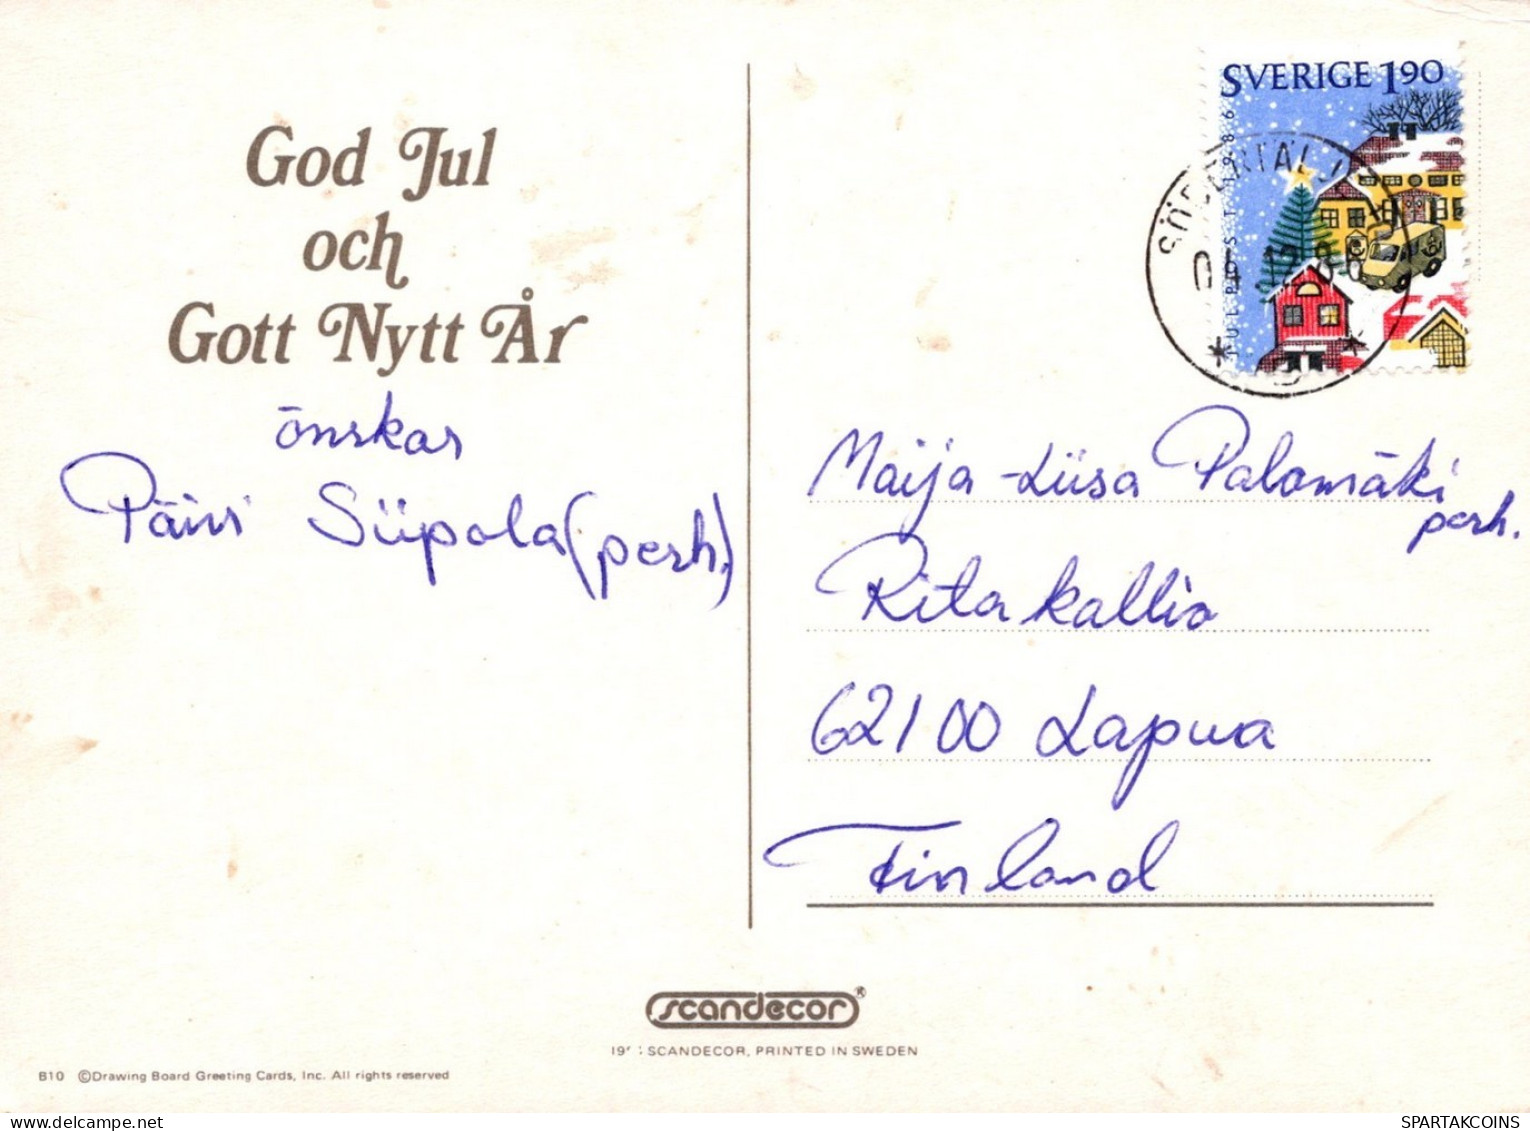 God Jul
och
Gott Nytt År
önskar
Päivi Siipola (perh.)
SVERIGE 190
JULPOST 1986
SÖDERTÄLJE
Maija-Liisa Palomäki
perh.
Ritakallio
62100 Lapua
Finland
scandecor®
SCANDECOR, PRINTED IN SWEDEN
B10 ©Drawing Board Greeting Cards, Inc. All rights reserved
SPARTAKCOINS